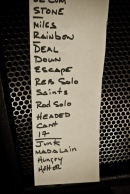 STONE
Miles
Rainbow
DEAL
DOWN
ESCAPE
Reb Solo
Saints
Rod Solo
HEADED
CANT
17
JUNK
MADALAIN
Hungry